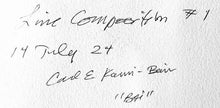 Line Composition #1
14 July 24
Carl E
"BAI"